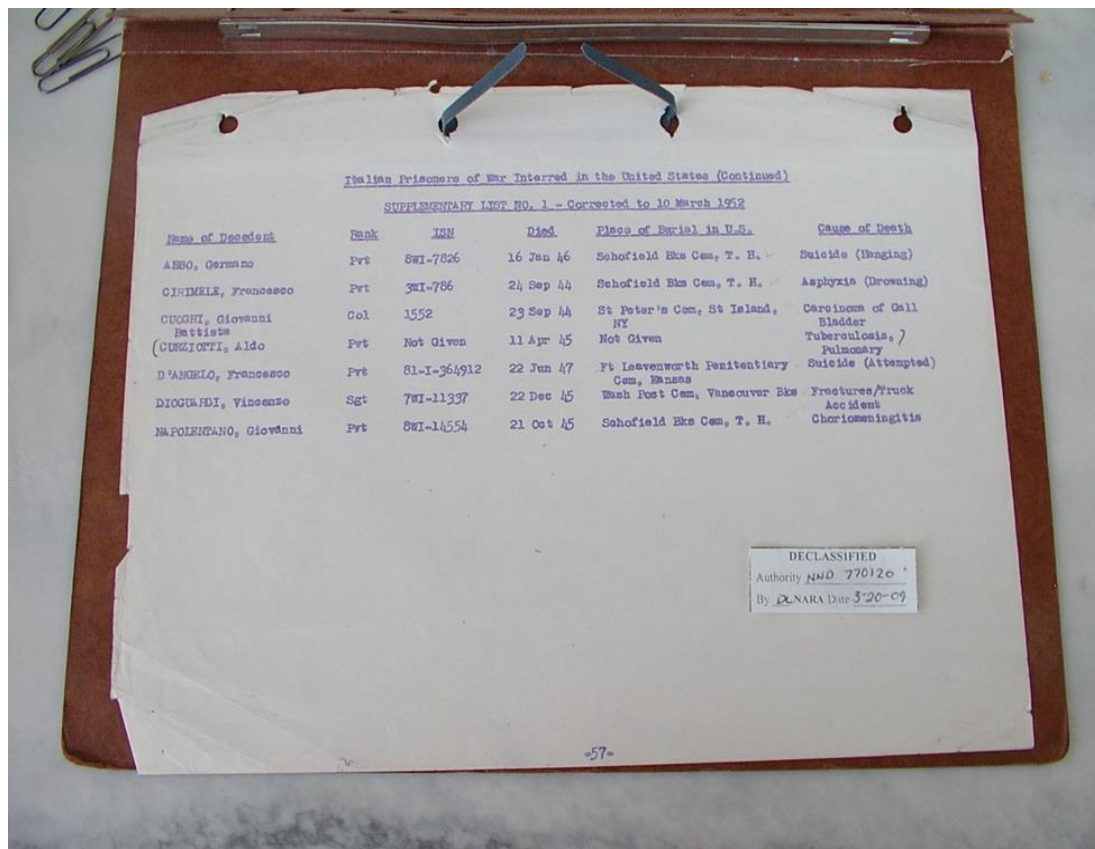 Italian Prisoners of War Interred in the United States (Continued)
SUPPLEMENTARY LIST NO. 1 - Corrected to 10 March 1952
Name of Decedent Rank ISN Died Place of Burial in U.S. Cause of Death
ABBO, Germano Pvt 8WI-7826 16 Jan 46 Schofield Bks Cem, T. H. Suicide (Hanging)
CIRIMELE, Francesco Pvt 3WI-786 24 Sep 44 Schofield Bks Cem, T. H. Asphyxia (Drowning)
CUOGHI, Giovanni Col 1552 23 Sep 44 St Peter's Cem, St Island, Carcinoma of Gall
Battista NY Bladder
(CURZIOTTI, Aldo Pvt Not Given 11 Apr 45 Not Given Tuberculosis, )
Pulmonary
D'ANGELO, Francesco Pvt 81-I-364912 22 Jun 47 Ft Leavenworth Penitentiary Suicide (Attempted)
Cem, Kansas
DIOGUARDI, Vincenzo Sgt 7WI-11397 22 Dec 45 Wash Post Cem, Vancouver Bks Fractures/Truck
Accident
NAPOLENTANO, Giovanni Pvt 8WI-14554 21 Oct 45 Schofield Bks Cem, T. H. Choriomeningitis
DECLASSIFIED
Authority NND 770120
By DL NARA Date 3-20-09
-57-